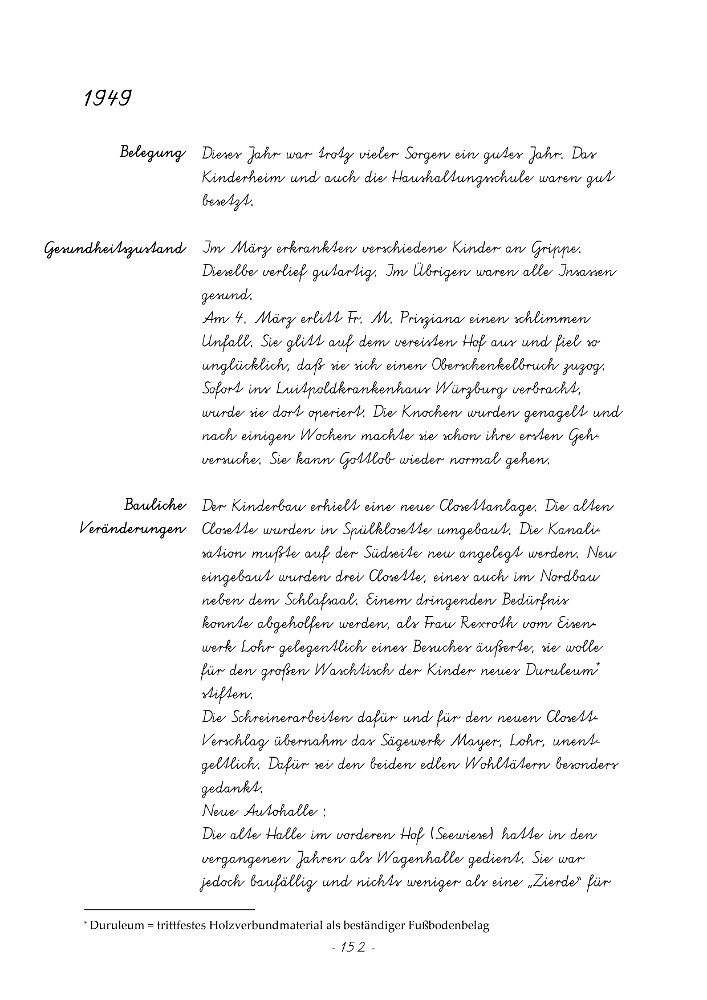 1949
Belegung Dieses Jahr war trotz vieler Sorgen ein gutes Jahr. Das
Kinderheim und auch die Haushaltungsschule waren gut
besetzt.
Gesundheitszustand Im März erkrankten verschiedene Kinder an Grippe.
Dieselbe verlief gutartig. Im Übrigen waren alle Insassen
gesund.
Am 4. März erlitt Fr. M. Prisziana einen schlimmen
Unfall. Sie glitt auf dem vereisten Hof aus und fiel so
unglücklich, daß sie sich einen Oberschenkelbruch zuzog.
Sofort ins Luitpoldkrankenhaus Würzburg verbracht,
wurde sie dort operiert. Die Knochen wurden genagelt und
nach einigen Wochen machte sie schon ihre ersten Geh-
versuche. Sie kann Gottlob wieder normal gehen.
Bauliche Der Kinderbau erhielt eine neue Closettanlage. Die alten
Veränderungen Closette wurden in Spülklosette umgebaut. Die Kanali-
sation mußte auf der Südseite neu angelegt werden. Neu
eingebaut wurden drei Closette, eines auch im Nordbau
neben dem Schlafsaal. Einem dringenden Bedürfnis
konnte abgeholfen werden, als Frau Rexroth vom Eisen-
werk Lohr gelegentlich eines Besuches äußerte, sie wolle
für den großen Waschtisch der Kinder neues Duruleum*
stiften.
Die Schreinerarbeiten dafür und für den neuen Closett-
Verschlag übernahm das Sägewerk Mayer, Lohr, unent-
geltlich. Dafür sei den beiden edlen Wohltätern besonders
gedankt.
Neue Autohalle :
Die alte Halle im vorderen Hof (Seewiese) hatte in den
vergangenen Jahren als Wagenhalle gedient. Sie war
jedoch baufällig und nichts weniger als eine „Zierde“ für
* Duruleum = trittfestes Holzverbundmaterial als beständiger Fußbodenbelag
- 152 -